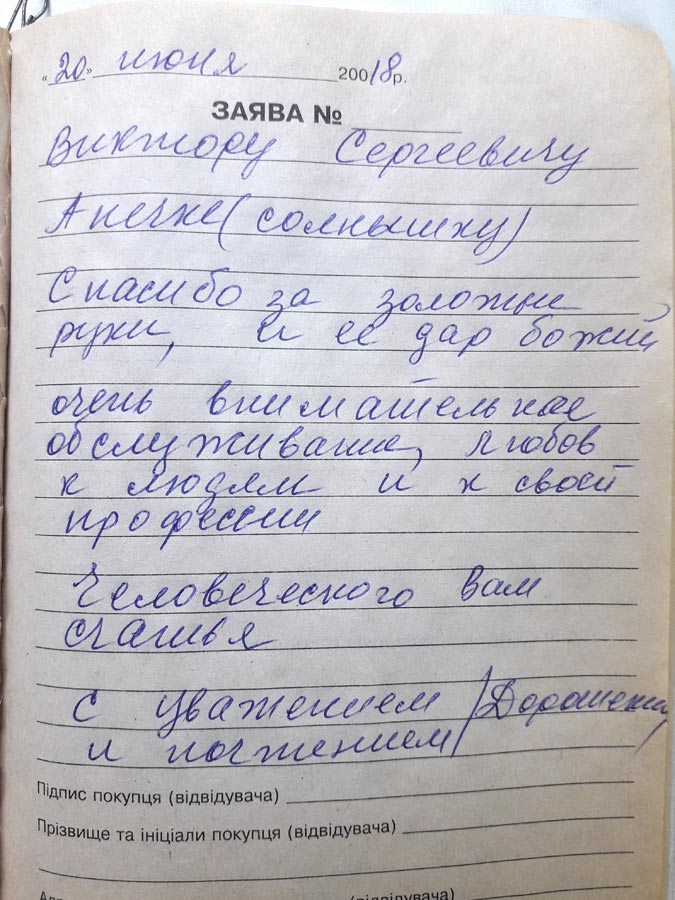 «20» июня 20018р.
ЗАЯВА №
Виктору Сергеевичу
Анечке (солнышку)
Спасибо за золотые
руки, и ее дар божий
очень внимательное
обслуживание, любов
к людям и к своей
профессии
Человеческого Вам
счастья
С уважением /
и почтением
Підпис покупця (відвідувача)
Прізвище та ініціали покупця (відвідувача)
(відвідувача)